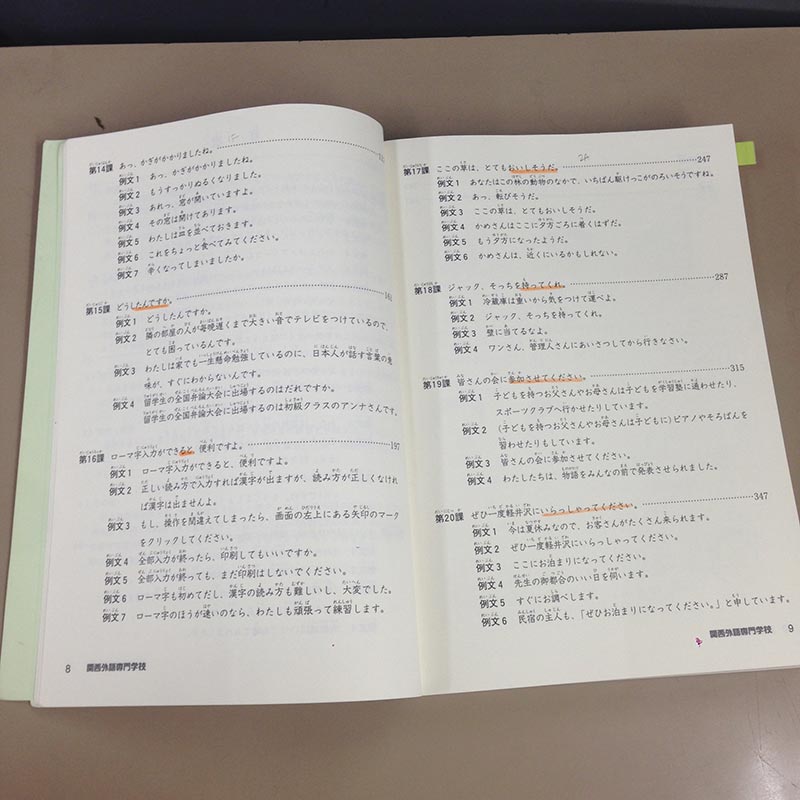 第14課 あっ、かぎがかかりましたね。
例文1 あっ、かぎがかかりましたね。
例文2 もうすっかりぬるくなりました。
例文3 あれっ、窓が開いていますよ。
例文4 その窓は開けてあります。
例文5 わたしは皿を並べておきます。
例文6 これをちょっと食べてみてください。
例文7 辛くなってしまいましたか。
第15課 どうしたんですか。 161
例文1 どうしたんですか。
例文2 隣の部屋の人が毎晩遅くまで大きい音でテレビをつけているので、
とても困っているんです。
例文3 わたしは家でも一生懸命勉強しているのに、日本人が話す言葉の意
味が、すぐにわからないんです。
例文4 留学生の全国弁論大会に出場するのはだれですか。
留学生の全国弁論大会に出場するのは初級クラスのアンナさんです。
第16課 ローマ字入力ができると、便利ですよ。 197
例文1 ローマ字入力ができると、便利ですよ。
例文2 正しい読み方で入力すれば漢字が出ますが、読み方が正しくなけれ
ば漢字は出ませんよ。
例文3 もし、操作を間違えてしまったら、画面の左上にある矢印のマーク
をクリックしてください。
例文4 全部入力が終ったら、印刷してもいいですか。
例文5 全部入力が終っても、まだ印刷はしないでください。
例文6 ローマ字も初めてだし、漢字の読み方も難しいし、大変でした。
例文7 ローマ字のほうが速いのなら、わたしも頑張って練習します。
8 関西外語専門学校
第17課 ここの草は、とてもおいしそうだ。 247
例文1 あなたはこの林の動物のなかで、いちばん駆けっこがのろいそうですね。
例文2 あっ、転びそうだ。
例文3 ここの草は、とてもおいしそうだ。
例文4 かめさんはここに夕方ごろに着くはずだ。
例文5 もう夕方になったようだ。
例文6 かめさんは、近くにいるかもしれない。
第18課 ジャック、そっちを持ってくれ。 287
例文1 冷蔵庫は重いから気をつけて運べよ。
例文2 ジャック、そっちを持ってくれ。
例文3 壁に当てるなよ。
例文4 ワンさん、管理人さんにあいさつしてから行きなさい。
第19課 皆さんの会に参加させてください。 315
例文1 子どもを持つお父さんやお母さんは子どもを学習塾に通わせたり、
スポーツクラブへ行かせたりしています。
例文2 (子どもを持つお父さんやお母さんは子どもに)ピアノやそろばんを
習わせたりもしています。
例文3 皆さんの会に参加させてください。
例文4 わたしたちは、物語をみんなの前で発表させられました。
第20課 ぜひ一度軽井沢にいらっしゃってください。 347
例文1 今は夏休みなので、お客さんがたくさん来られます。
例文2 ぜひ一度軽井沢にいらっしゃってください。
例文3 ここにお泊まりになってください。
例文4 先生の御都合のいい日を伺います。
例文5 すぐにお調べします。
例文6 民宿の主人も、「ぜひお泊まりになってください。」と申しています。
関西外語専門学校 9